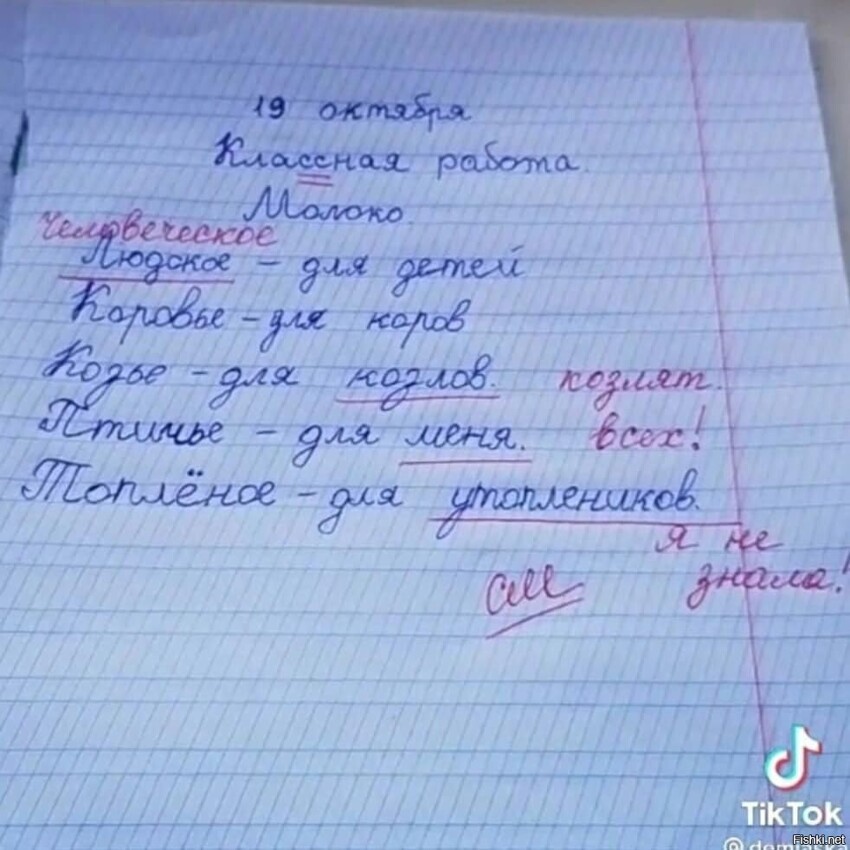 19 октября
Классная работа.
Молоко.
Человеческое
Людское – для детей
Коровье – для коров
Козье – для козлов. козлят.
Птичье – для меня. всех!
Топлёное – для утоплеников.
я не
знала!
см
TikTok
Fishki.net